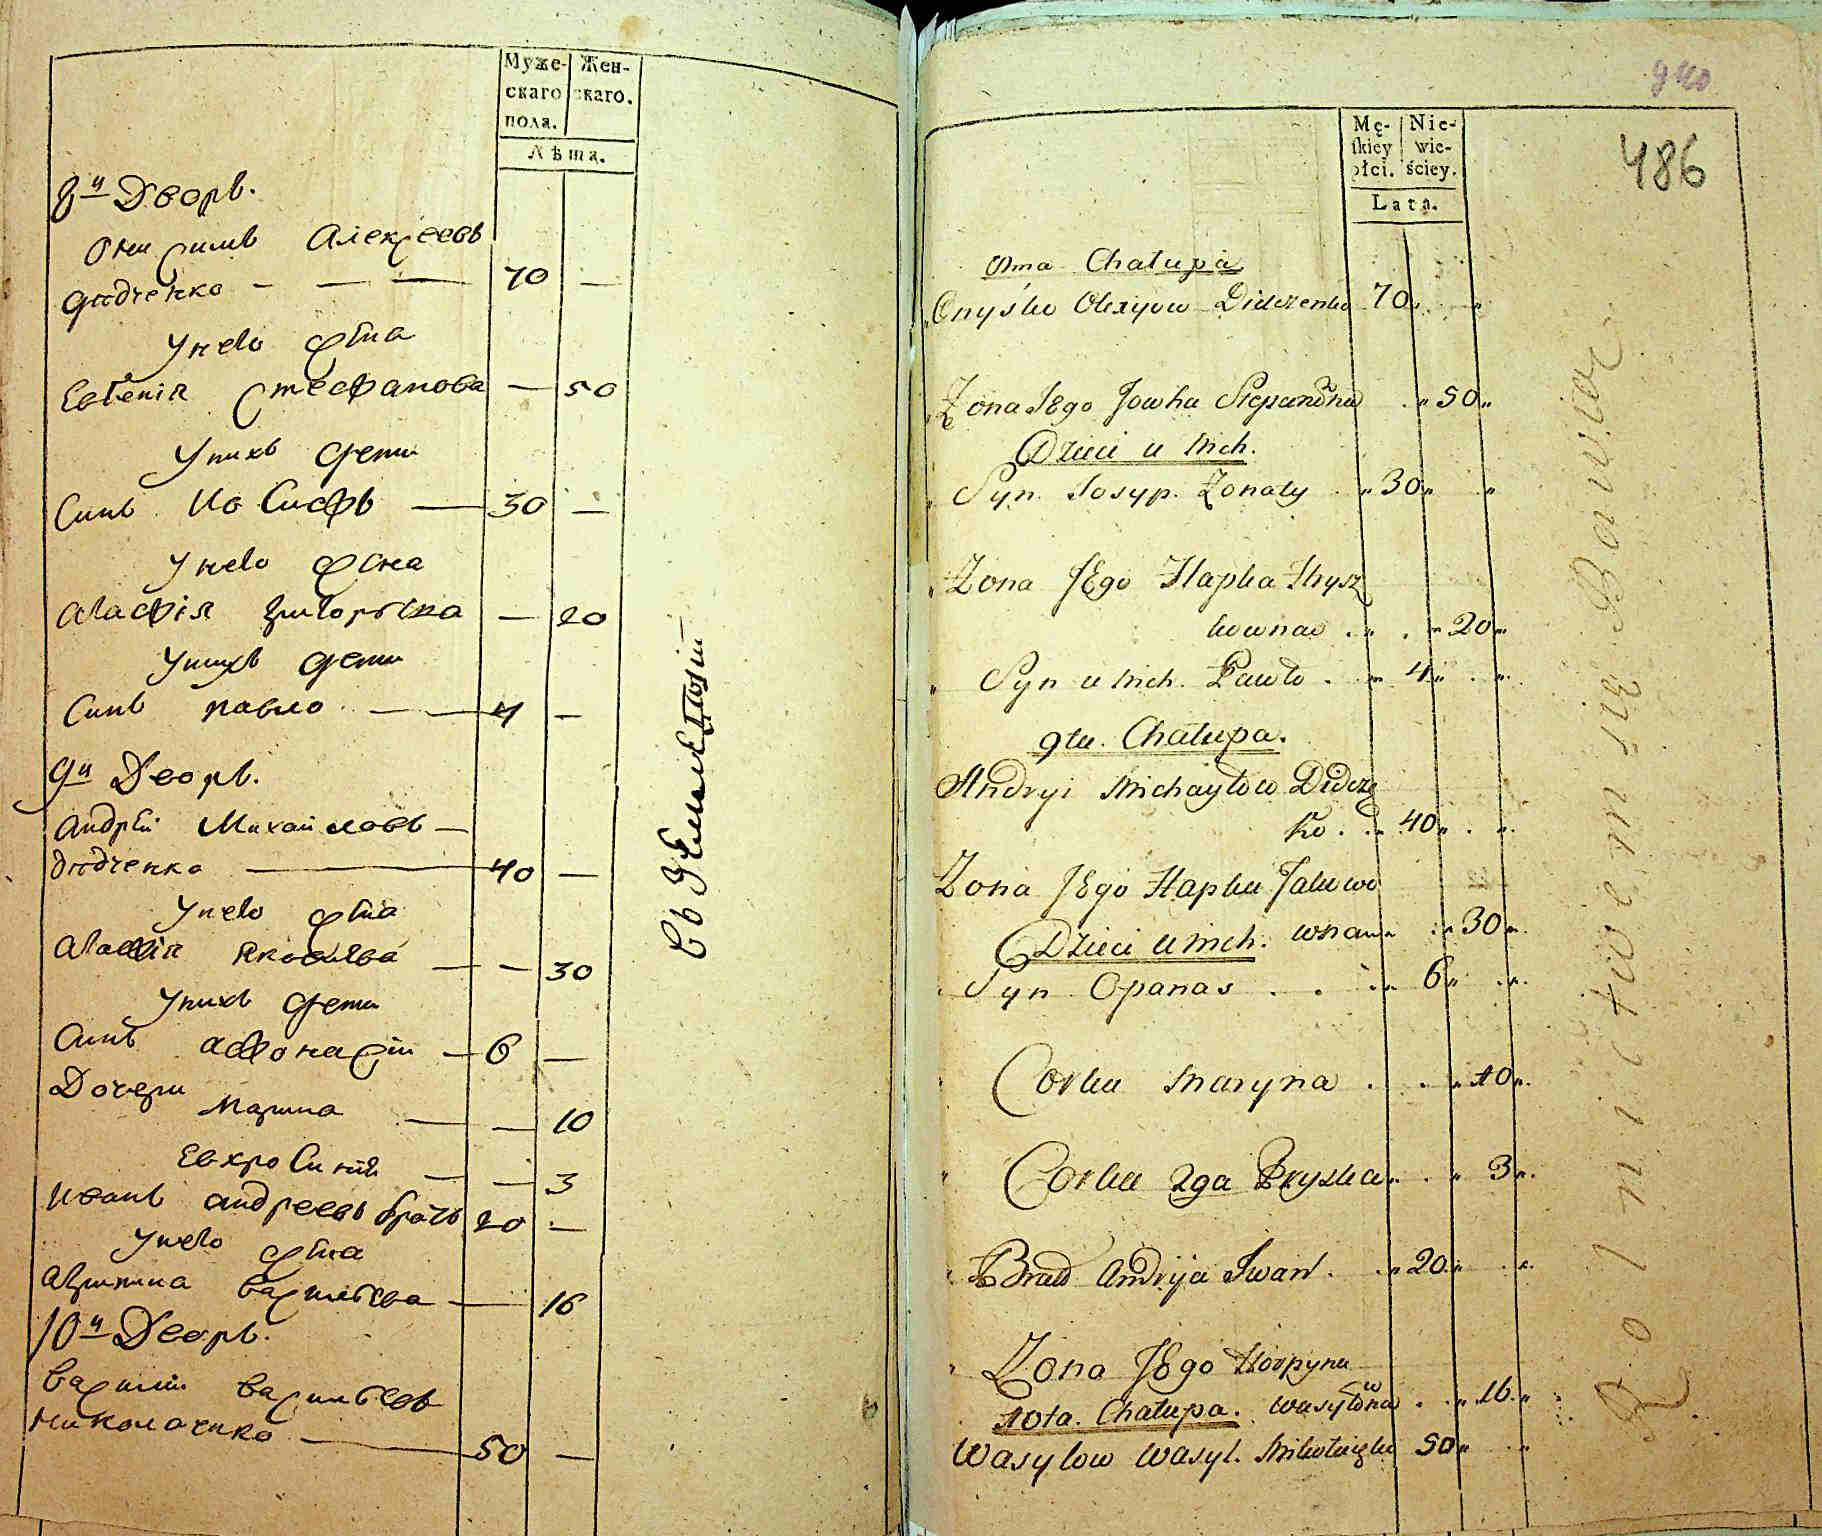 Муже-
скаго
пола.
Жен-
скаго.
Лѣта.
8й Дворъ.
Онисимъ Алексѣевъ
дядченко — — — 70 —
У него жена
Евгенія Стефанова — 50
У нихъ дети
Синъ Иосифъ — 30 —
У него жена
Агафія Григорьева — 20
У нихъ дети
Синъ павло — 4 —
9й Дворъ.
Андрей Михайловъ —
дядченко — 40 —
У него жена
Агафія Яковлева — — 30
У нихъ дети
Синъ Афонасій — 6 —
Дочери Марина — — 10
Евхросинія — — 3
Иванъ андреевъ братъ 20 —
У него жена
Агрипина василиева — 16
10й Дворъ.
василий василиевъ
Николаенко — 50 —
Mę-
skiey
płci.
Nie-
wie-
ściey.
Lata.
940
486
osma Chałupa
Onyśko Olexyow Didczenko 70 „
Zona Jego Jowha Stepanowna „ 50 „
Dzieci u Nich.
Syn Josyp. Zonaty „ 30 „ „
Zona Jego Hapka Hrysz
kowna . „ . „ 20 „
Syn u Nich. Pawło . „ 4 „ . „
9ta. Chałupa.
Andryi Michayłow Didcze
ko . „ 40 „ . „
Zona Jego Hapka Jakuwo
wna „ : „ 30 „
Dzieci u nich.
Syn Opanas . . „ 6 „ . „
Corka Maryna . . „ 10 „
Corka 2ga Pryska „ . „ 3 „
Brat Andryja Iwan . „ 20 „ . „
Zona Jego Horpyna
Wasylowna . „ 16 „
10ta. Chałupa.
Wasylow Wasyl. 50 „ „
Rolnictwem się Bawiar